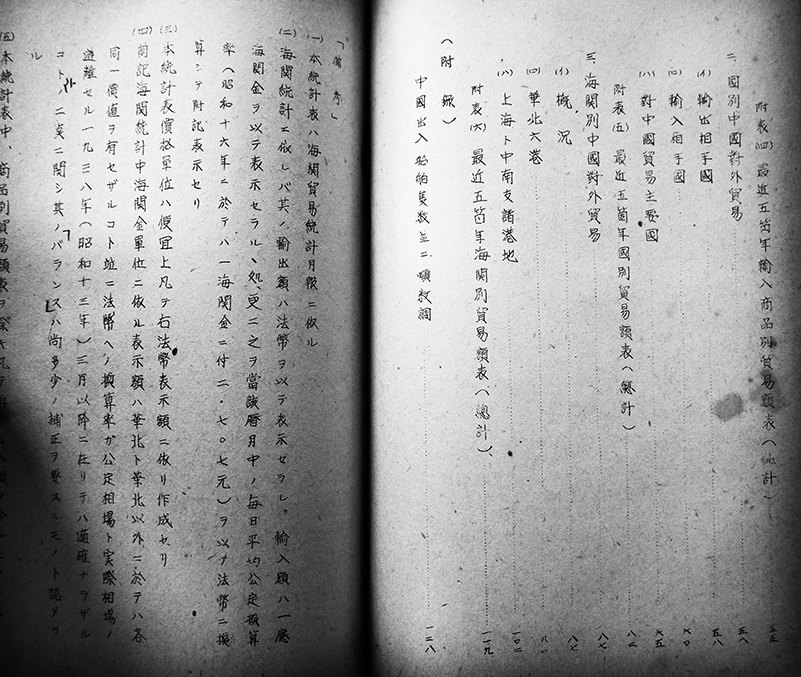 附表(四) 最近五箇年輸入商品別貿易額表(純計) 五五
二、國別中國對外貿易 五八
(イ) 輸出相手國 五八
(ロ) 輸入相手國 六〇
(ハ) 對中國貿易主要國 六五
附表(五) 最近五箇年國別貿易額表(總計) 八二
三、海關別中國對外貿易 八七
(イ) 概況 八七
(ロ) 華北六港 八〇
(ハ) 上海ト中南支諸港地 一〇二
附表(六) 最近五箇年海關別貿易額表(總計) 一一九
(附錄)
中國出入船舶隻數並ニ噸數調 一二八
「備考」
(一) 本統計表ハ海關貿易統計月報ニ依ル
(二) 海関統計ニ依レバ其ノ輸出額ハ法幣ヲ以テ表示セラレ、輸入額ハ一應
海関金ヲ以テ表示セラルヽ処、更ニ之ヲ當該暦月中ノ毎日平均公定換算
率(昭和十六年ニ於テハ一海関金ニ付二・七〇七元)ヲ以テ法幣ニ換
算シテ附記表示セリ
(三) 本統計表價格單位ハ便宜上凡テ右法幣表示額ニ依リ作成セリ
(四) 前記海関統計中海関金單位ニ依ル表示額ハ華北ト華北以外ニ於テハ各
同一價値ヲ有セザルコト竝ニ法幣ヘノ換算率ガ公定相場ト実際相場ノ
遊離セル一九三八年(昭和十三年)三月以降ニ在リテハ適確ナラザル
コト、ニ点ニ関シ其ノ「バランス」ハ尚多少ノ補正ヲ要スルモノト認メラ
ル
(五) 本統計表中、商品別貿易額表ヲ除キ凡テ